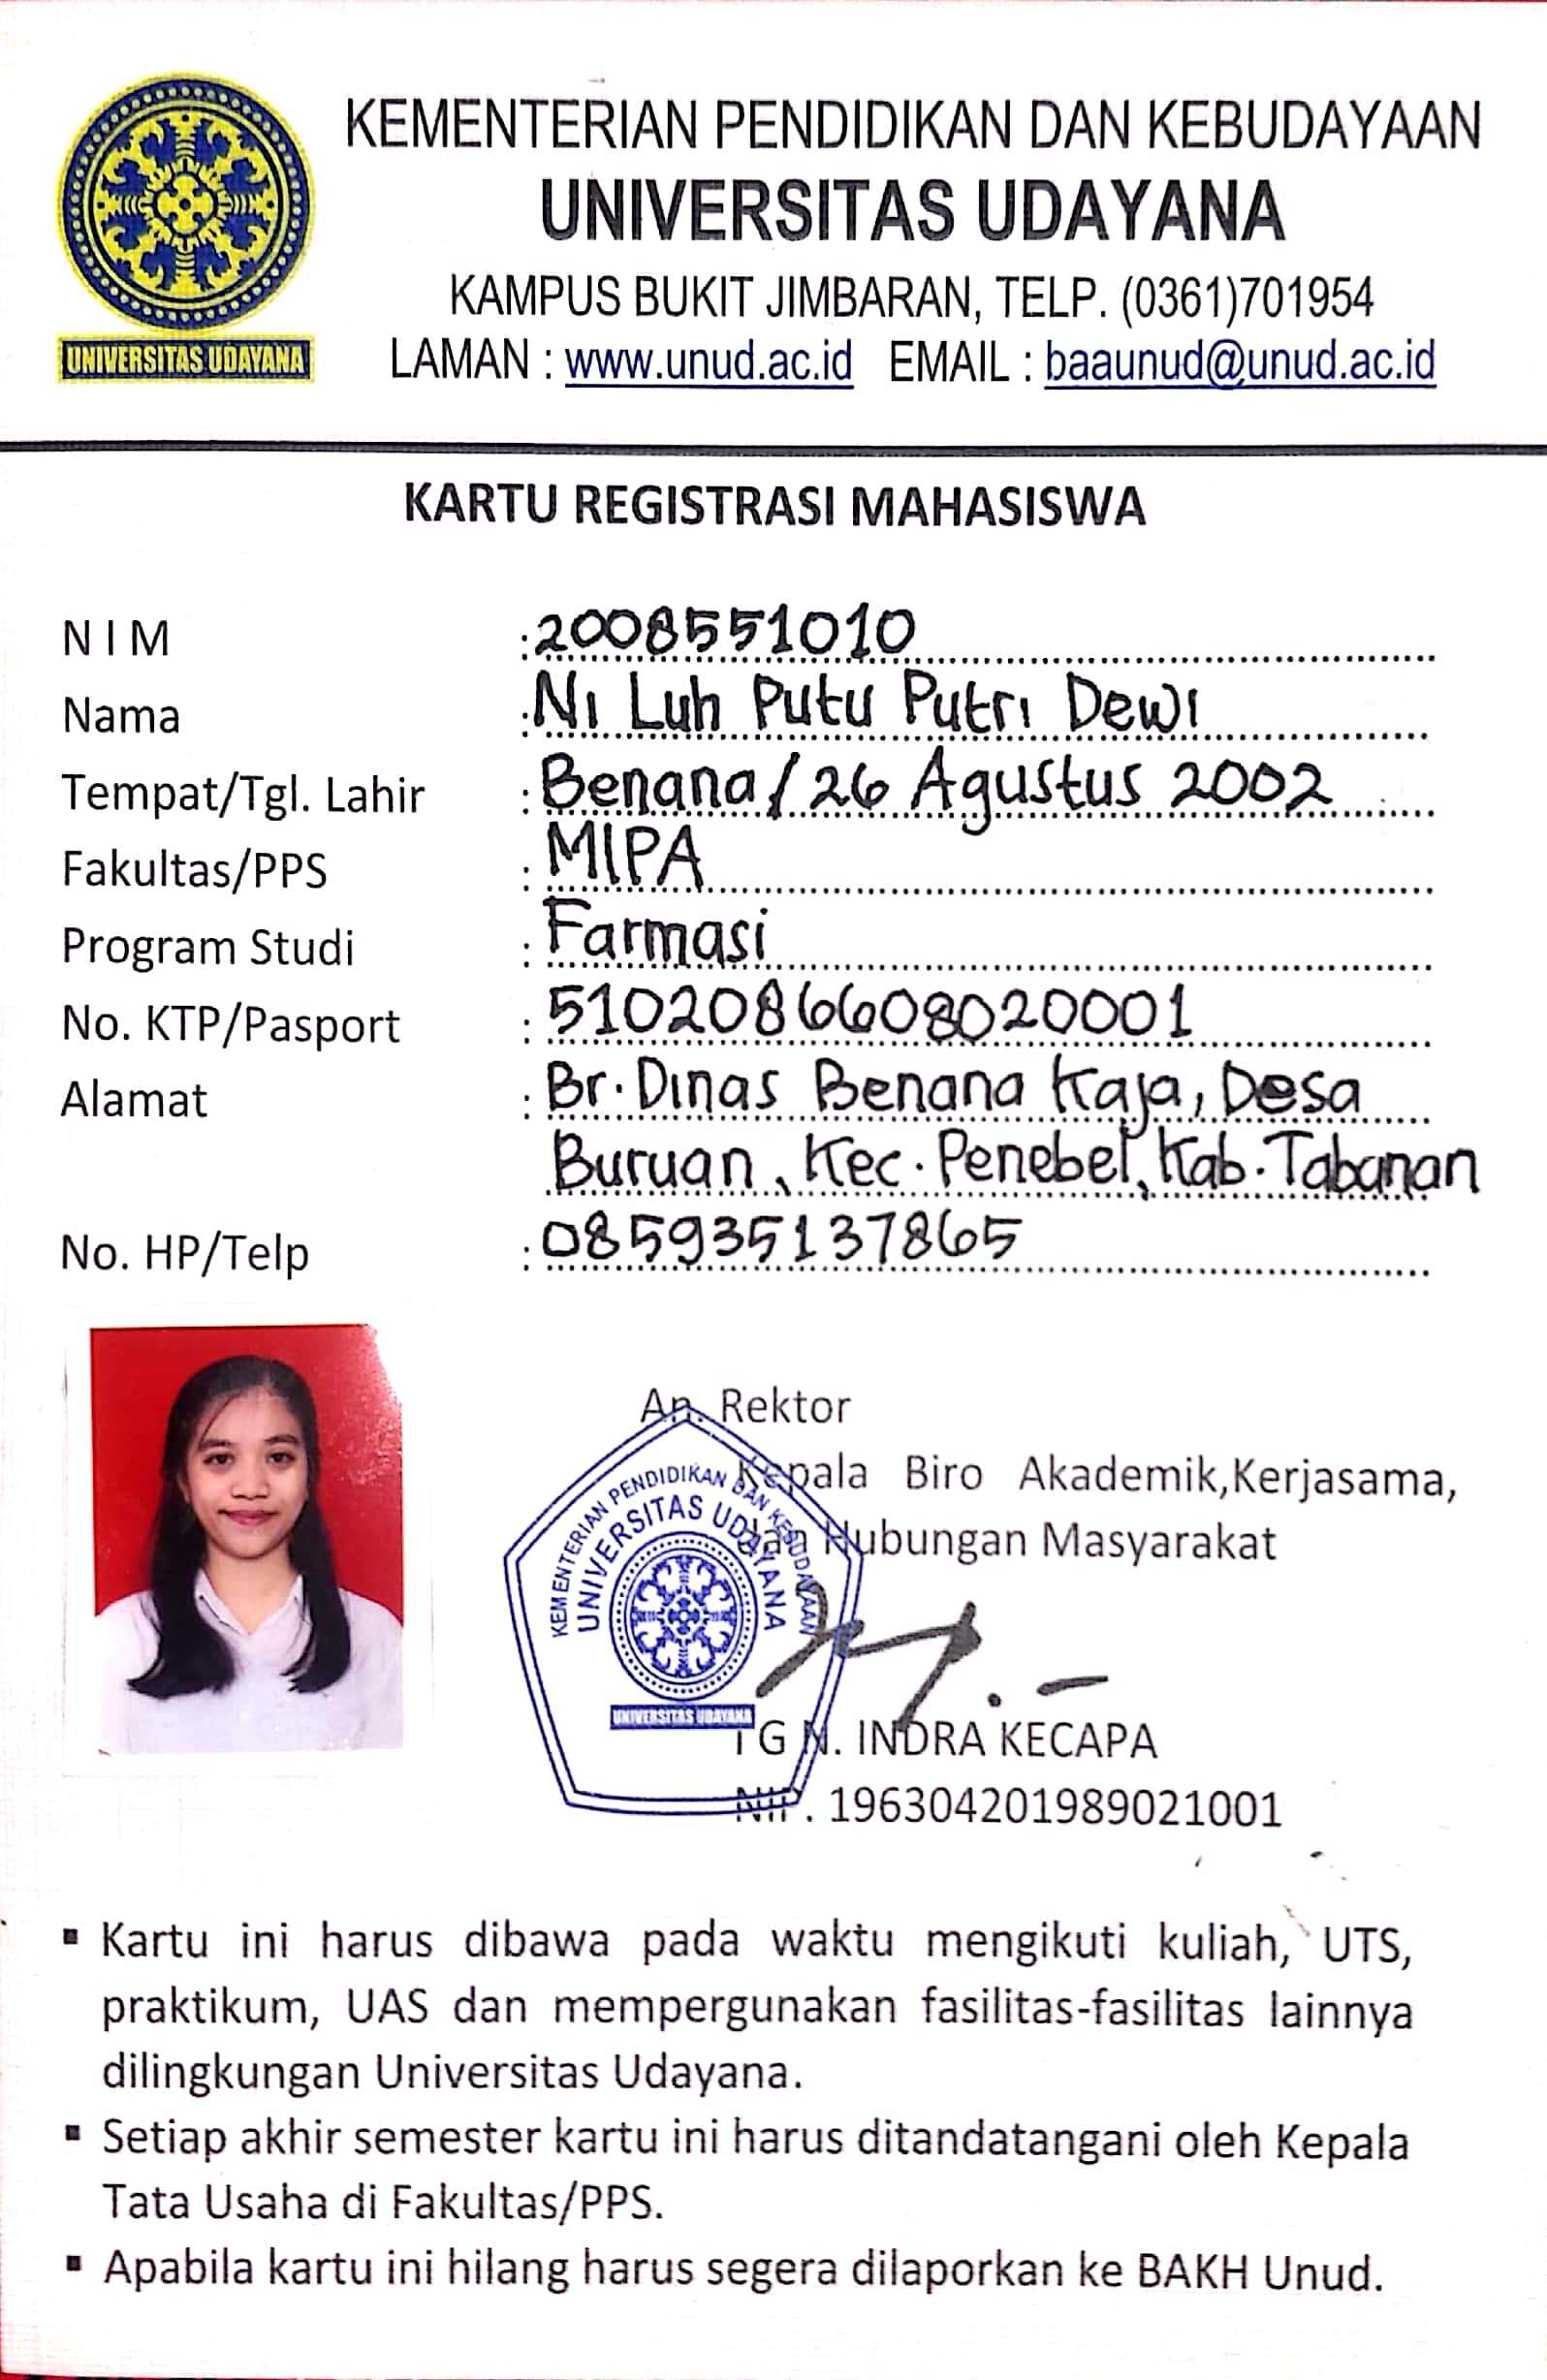 KEMENTERIAN PENDIDIKAN DAN KEBUDAYAAN
UNIVERSITAS UDAYANA
KAMPUS BUKIT JIMBARAN, TELP. (0361)701954
LAMAN : www.unud.ac.id EMAIL : baaunud@unud.ac.id
UNIVERSITAS UDAYANA
KARTU REGISTRASI MAHASISWA
N I M : 2008551010
Nama : Ni Luh Putu Putri Dewi
Tempat/Tgl. Lahir : Benana / 26 Agustus 2002
Fakultas/PPS : MIPA
Program Studi : Farmasi
No. KTP/Pasport : 5102086608020001
Alamat : Br. Dinas Benana Kaja, Desa
Buruan, Kec. Penebel, Kab. Tabanan
No. HP/Telp : 085935137865
An. Rektor
Kepala Biro Akademik,Kerjasama,
dan Hubungan Masyarakat
KEMENTERIAN PENDIDIKAN DAN KEBUDAYAAN
UNIVERSITAS UDAYANA
UNIVERSITAS UDAYANA
G N. INDRA KECAPA
NIP. 196304201989021001
▪ Kartu ini harus dibawa pada waktu mengikuti kuliah, UTS,
praktikum, UAS dan mempergunakan fasilitas-fasilitas lainnya
dilingkungan Universitas Udayana.
▪ Setiap akhir semester kartu ini harus ditandatangani oleh Kepala
Tata Usaha di Fakultas/PPS.
▪ Apabila kartu ini hilang harus segera dilaporkan ke BAKH Unud.